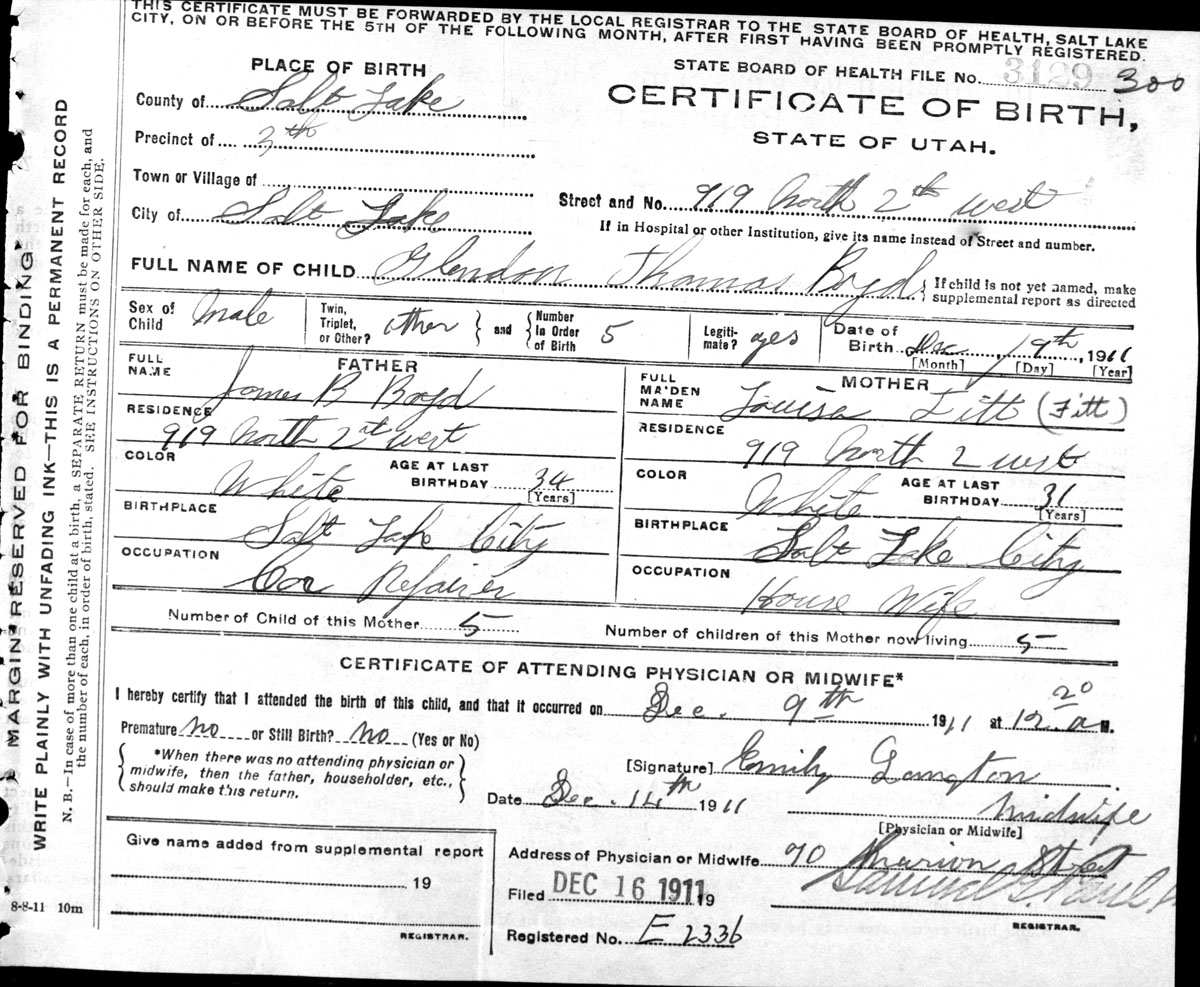 THIS CERTIFICATE MUST BE FORWARDED BY THE LOCAL REGISTRAR TO THE STATE BOARD OF HEALTH, SALT LAKE
CITY, ON OR BEFORE THE 5TH OF THE FOLLOWING MONTH, AFTER FIRST HAVING BEEN PROMPTLY REGISTERED.
STATE BOARD OF HEALTH FILE NO. 3129 300
PLACE OF BIRTH
CERTIFICATE OF BIRTH,
STATE OF UTAH.
County of Salt Lake
Precinct of 3th
Town or Village of
City of Salt Lake
Street and No. 919 North 2th west
If in Hospital or other Institution, give its name instead of Street and number.
FULL NAME OF CHILD Glendon Thomas Boyd
{ If child is not yet named, make
supplemental report as directed
Sex of Child Male
Twin, Triplet, or Other? other
and { Number In Order of Birth 5
Legiti-mate? yes
Date of Birth Dec 9th, 1911
[Month] [Day] [Year]
FATHER
FULL NAME James B Boyd
RESIDENCE
919 North 2st west
COLOR White
AGE AT LAST BIRTHDAY 34
[Years]
BIRTHPLACE
Salt Lake City
OCCUPATION
Car Repairer
MOTHER
FULL MA'DEN NAME Louisa Titt (Fitt)
RESIDENCE
919 North 2 west
COLOR White
AGE AT LAST BIRTHDAY 31
[Years]
BIRTHPLACE
Salt Lake City
OCCUPATION
House Wife
Number of Child of this Mother 5
Number of children of this Mother now living 5
CERTIFICATE OF ATTENDING PHYSICIAN OR MIDWIFE*
I hereby certify that I attended the birth of this child, and that it occurred on Dec. 9th 1911 at 12.20 a M.
Premature No or Still Birth? No (Yes or No)
{ *When there was no attending physician or
midwife, then the father, householder, etc.,
should make this return. }
[Signature] Emily Langton
Date Dec. 14th 1911
Midwife
[Physician or Midwife]
Give name added from supplemental report
19
REGISTRAR.
Address of Physician or Midwife 70 Marion Street
Filed DEC 16 1911 19
REGISTRAR.
Registered No. E 2336
8-8-11 10m
MARGIN RESERVED FOR BINDING
WRITE PLAINLY WITH UNFADING INK—THIS IS A PERMANENT RECORD
N. B.—In case of more than one child at a birth, a SEPARATE RETURN must be made for each, and
the number of each, in order of birth, stated. SEE INSTRUCTIONS ON OTHER SIDE.